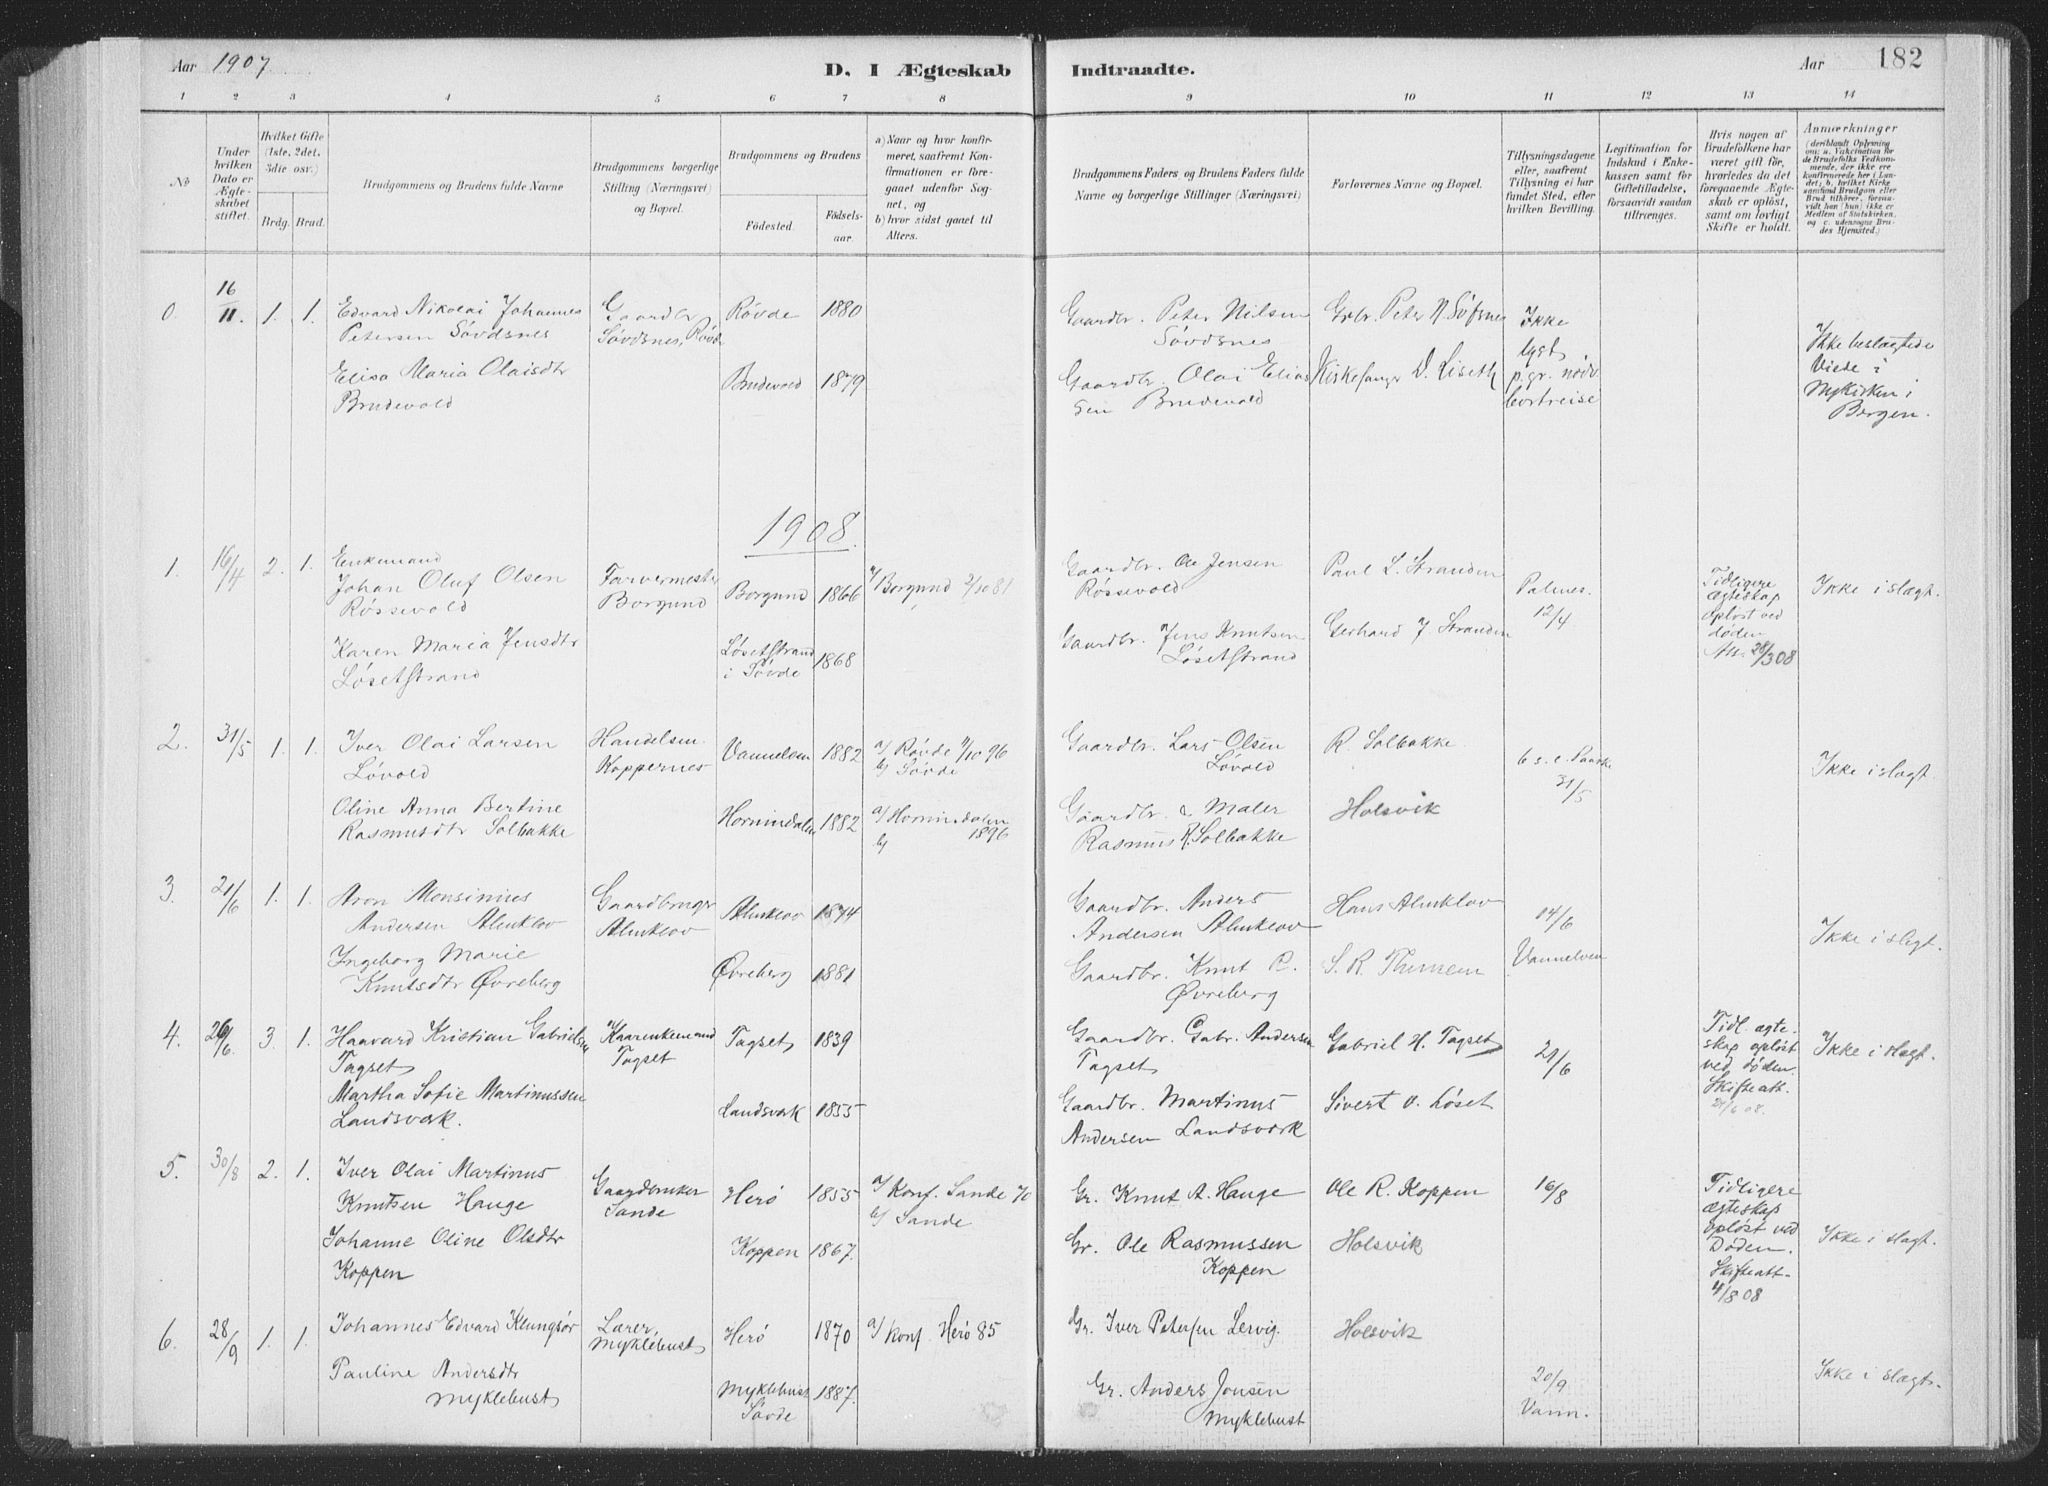 Aar 1907 D. I Ægteskab Indtraadte. Aar 182
1 2 3 4 5 6 7 8 9 10 11 12 13 14
No
Under hvilken Dato er Ægteskabet stiftet.
Hvilket Gifte (1ste, 2det, 3die osv.)
Brdg. Brud.
Brudgommens og Brudens fulde Navne
Brudgommens borgerlige Stilling (Næringsvei) og Bopæl.
Brudgommens og Brudens
Födested.
Födselsaar.
a) Naar og hvor konfirmeret, saafremt Konfirmationen er foregaaet udenfor Sognet, og
b) hvor sidst gaaet til Alters.
Brudgommens Faders og Brudens Faders fulde Navne og borgerlige Stillinger (Næringsvei)
Forlovernes Navne og Bopæl.
Tillysningsdagene eller, saafremt Tillysning ei har fundet Sted, efter hvilken Bevilling.
Legitimation for Indskud i Enkekassen samt for Giftetilladelse, forsaavidt saadan tiltrænges.
Hvis nogen af Brudefolkene har været gift för, hvorledes da det foregaaende Ægteskab er oplöst, samt om lovligt Skifte er holdt.
Anmærkninger (deriblandt Oplysning om: a. Vakcination for de Brudefolks Vedkommende, der ikke ere konfirmerede her i Landet; b. hvilket Kirkesamfund Brudgom eller Brud tilhörer, forsaavidt han (hun) ikke er Medlem af Statskirken, og c. udensogns Brudes Hjemsted.)
0. 16/11. 1. 1. Edvard Nikolai Johannes
Petersen Sövdsnes
Gaardbr.
Sövdsnes, Rövde
Rövde 1880
Gaardbr. Peter Nilsen
Sövdsnes
Grbr. Peter N. Söfsnes
Ikke
lyst
p. gr. nödv.
bortreise
Ikke beslægtede
Viede i
Nykirken i
Bergen.
Elisa Maria Olaisdtr
Brudevold
Brudevold 1879
Gaardbr. Olai Elias
sen Brudevold
Kirkesanger D. Liseth
1908.
1. 16/4 2. 1. Enkemand
Johan Oluf Olsen
Rössevold
Farvermester
Borgund
Borgund 1866
a/ Borgund 2/10 81
Gaardbr. Ole Jensen
Rössevold
Paul L. Stranden
Palmes.
12/4
Tidligere
ægteskap
oplöst ved
döden
Att. 28/3 08
Ikke i slægt.
Karen Maria Jensdtr
Lösetstrand
Lösetstrand
i Sövde
1868
Gaardbr. Jens Knutsen
Lösetstrand
Gerhard J. Stranden
2. 31/5 1. 1. Iver Olai Larsen
Lövold
Handelsm.
Koppernes
Vannelven 1882
a/ Rövde 4/10 96
b/ Sövde
Gaardbr. Lars Olsen
Lövold
R. Solbakke
6 s. e. Paaske
31/5
Ikke i slægt.
Oline Anna Bertine
Rasmusdtr Solbakke
Hornindalen 1882
a/ Hornindalen
1896
b/
Gaardbr. & Maler
Rasmus R. Solbakke
Holsvik
3. 21/6 1. 1. Aron Monsinius
Andersen Almklov
Gaardbruger
Almklov
Almklov 1874
Gaardbr. Anders
Andersen Almklov
Hans Almklov
14/6
Vannelven
Ikke i slegt.
Ingeborg Marie
Knutsdtr Övreberg
Övreberg 1881
Gaardbr. Knut R.
Övreberg
S. R. Thunem
4. 26/6. 3. 1. Haavard Kristian Gabrielsen
Tagset
Kaarenkemand
Tagset
Tagset 1839
Gaardbr. Gabr. Andersen
Tagset
Gabriel H. Tagset
21/6
Tidl. ægte-
skap oplöst
ved döden.
Skifteatt.
Ikke i slægt.
Martha Sofie Martinussen
Landsværk.
Landsværk 1855
Gaardbr. Martinus
Andersen Landsværk
Sivert O. Löset
5. 30/8 2. 1. Iver Olai Martinus
Knutsen Hauge
Gaardbruker
Sande
Herö 1855
a/ Konf. Sande 70
b/ Sande
Gr. Knut A. Hauge
Ole R. Koppen
16/8
Tidligere
ægteskap
oplöst ved
Döden.
Skifteatt.
4/8 08
Ikke i slægt.
Johanne Oline Olsdtr
Koppen
Koppen 1867.
Gr. Ole Rasmussen
Koppen
Holsvik
6. 28/9 1. 1. Johannes Edvard Klungsör
Lærer
Myklebust
Herö 1870
a/ Konf. Herö 85
Gr. Iver Petersen Lervig.
Holsvik
20/9
Vann.
Ikke i slægt.
Pauline Andersdtr
Myklebust
Myklebust
Sövde
1887.
Gr. Anders Jonsen
Myklebust